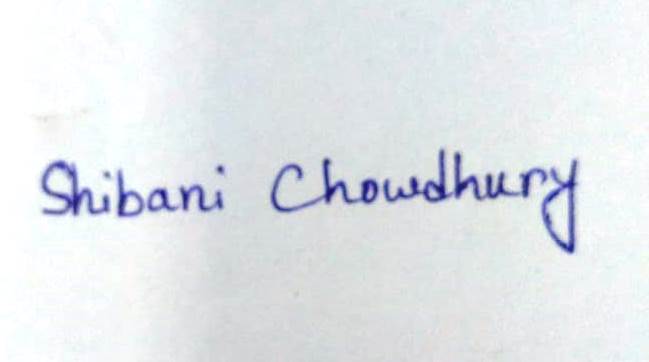 Shibani Chowdhury